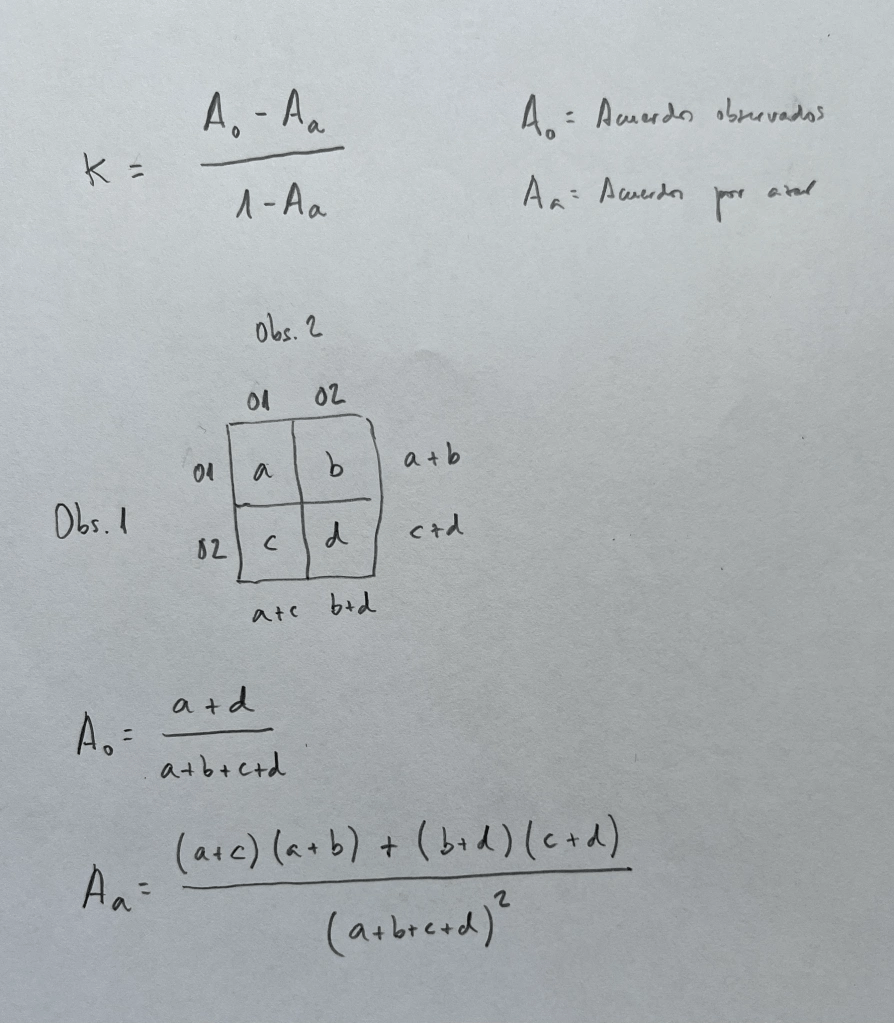 K = (A₀ - Aₐ) / (1 - Aₐ)
A₀ = Acuerdos observados
Aₐ = Acuerdos por azar
Obs. 2
01 02
01 a b a+b
Obs. 1
02 c d c+d
a+c b+d
A₀ = (a+d) / (a+b+c+d)
Aₐ = ((a+c)(a+b) + (b+d)(c+d)) / (a+b+c+d)²